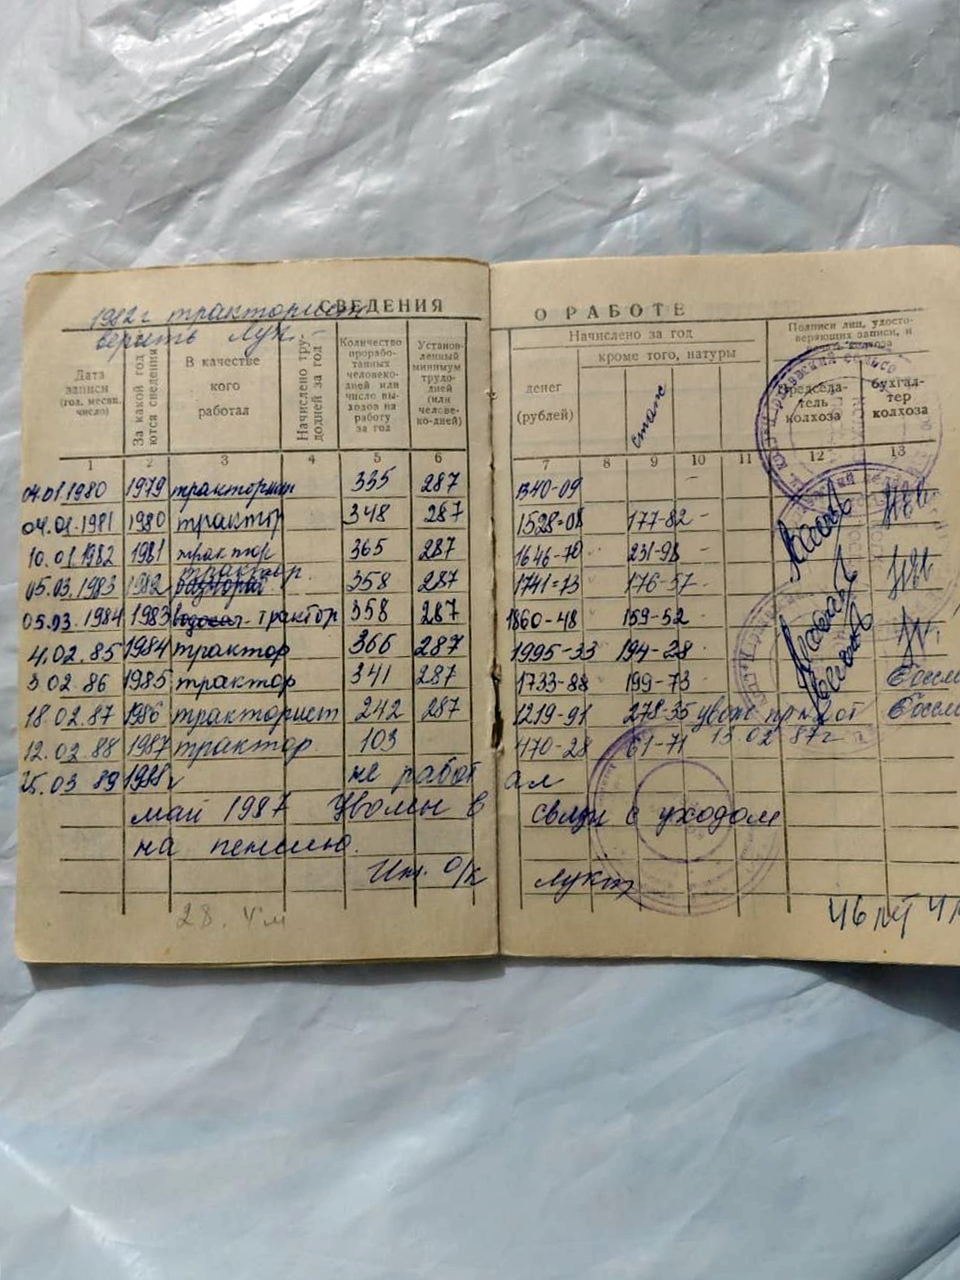 СВЕДЕНИЯ О РАБОТЕ
1982 г тракторист
верить
Дата записи (год, месяц, число)
За какой год вносятся сведения
В качестве кого работал
Начислено трудодней за год
Количество проработанных человеко-дней или число выходов на работу за год
Установленный минимум трудодней (или человеко-дней)
Начислено за год
денег (рублей)
кроме того, натуры
стаж
Подписи лиц, удостоверяющих записи, и
Председатель колхоза
бухгалтер колхоза
1 2 3 4 5 6 7 8 9 10 11 12 13
04.01.1980 1979 тракторист 335 287 1340-09 -
04.01.1981 1980 трактор 348 287 1528=08 177-82 -
10.01.1982 1981 трактор 365 287 1646-70 231-98 -
трактор.
05.03.1983 1982 358 287 1741=73 176-57 -
05.03.1984 1983 трактор 358 287 1860-48 159-52 -
4.02.85 1984 трактор 366 287 1995-33 194-28
3 02.86 1985 трактор 341 287 1733-88 199-73
18.02.87 1986 тракторист 242 287 1219-91 278-35 увол от
12.02.88 1987 трактор. 103 470-28 61-71 13.02 87г
25.03 89 1988г не работал
май 1987 Уволен в связи с уходом
на пенсию.
Ин. о/к
28. 4м